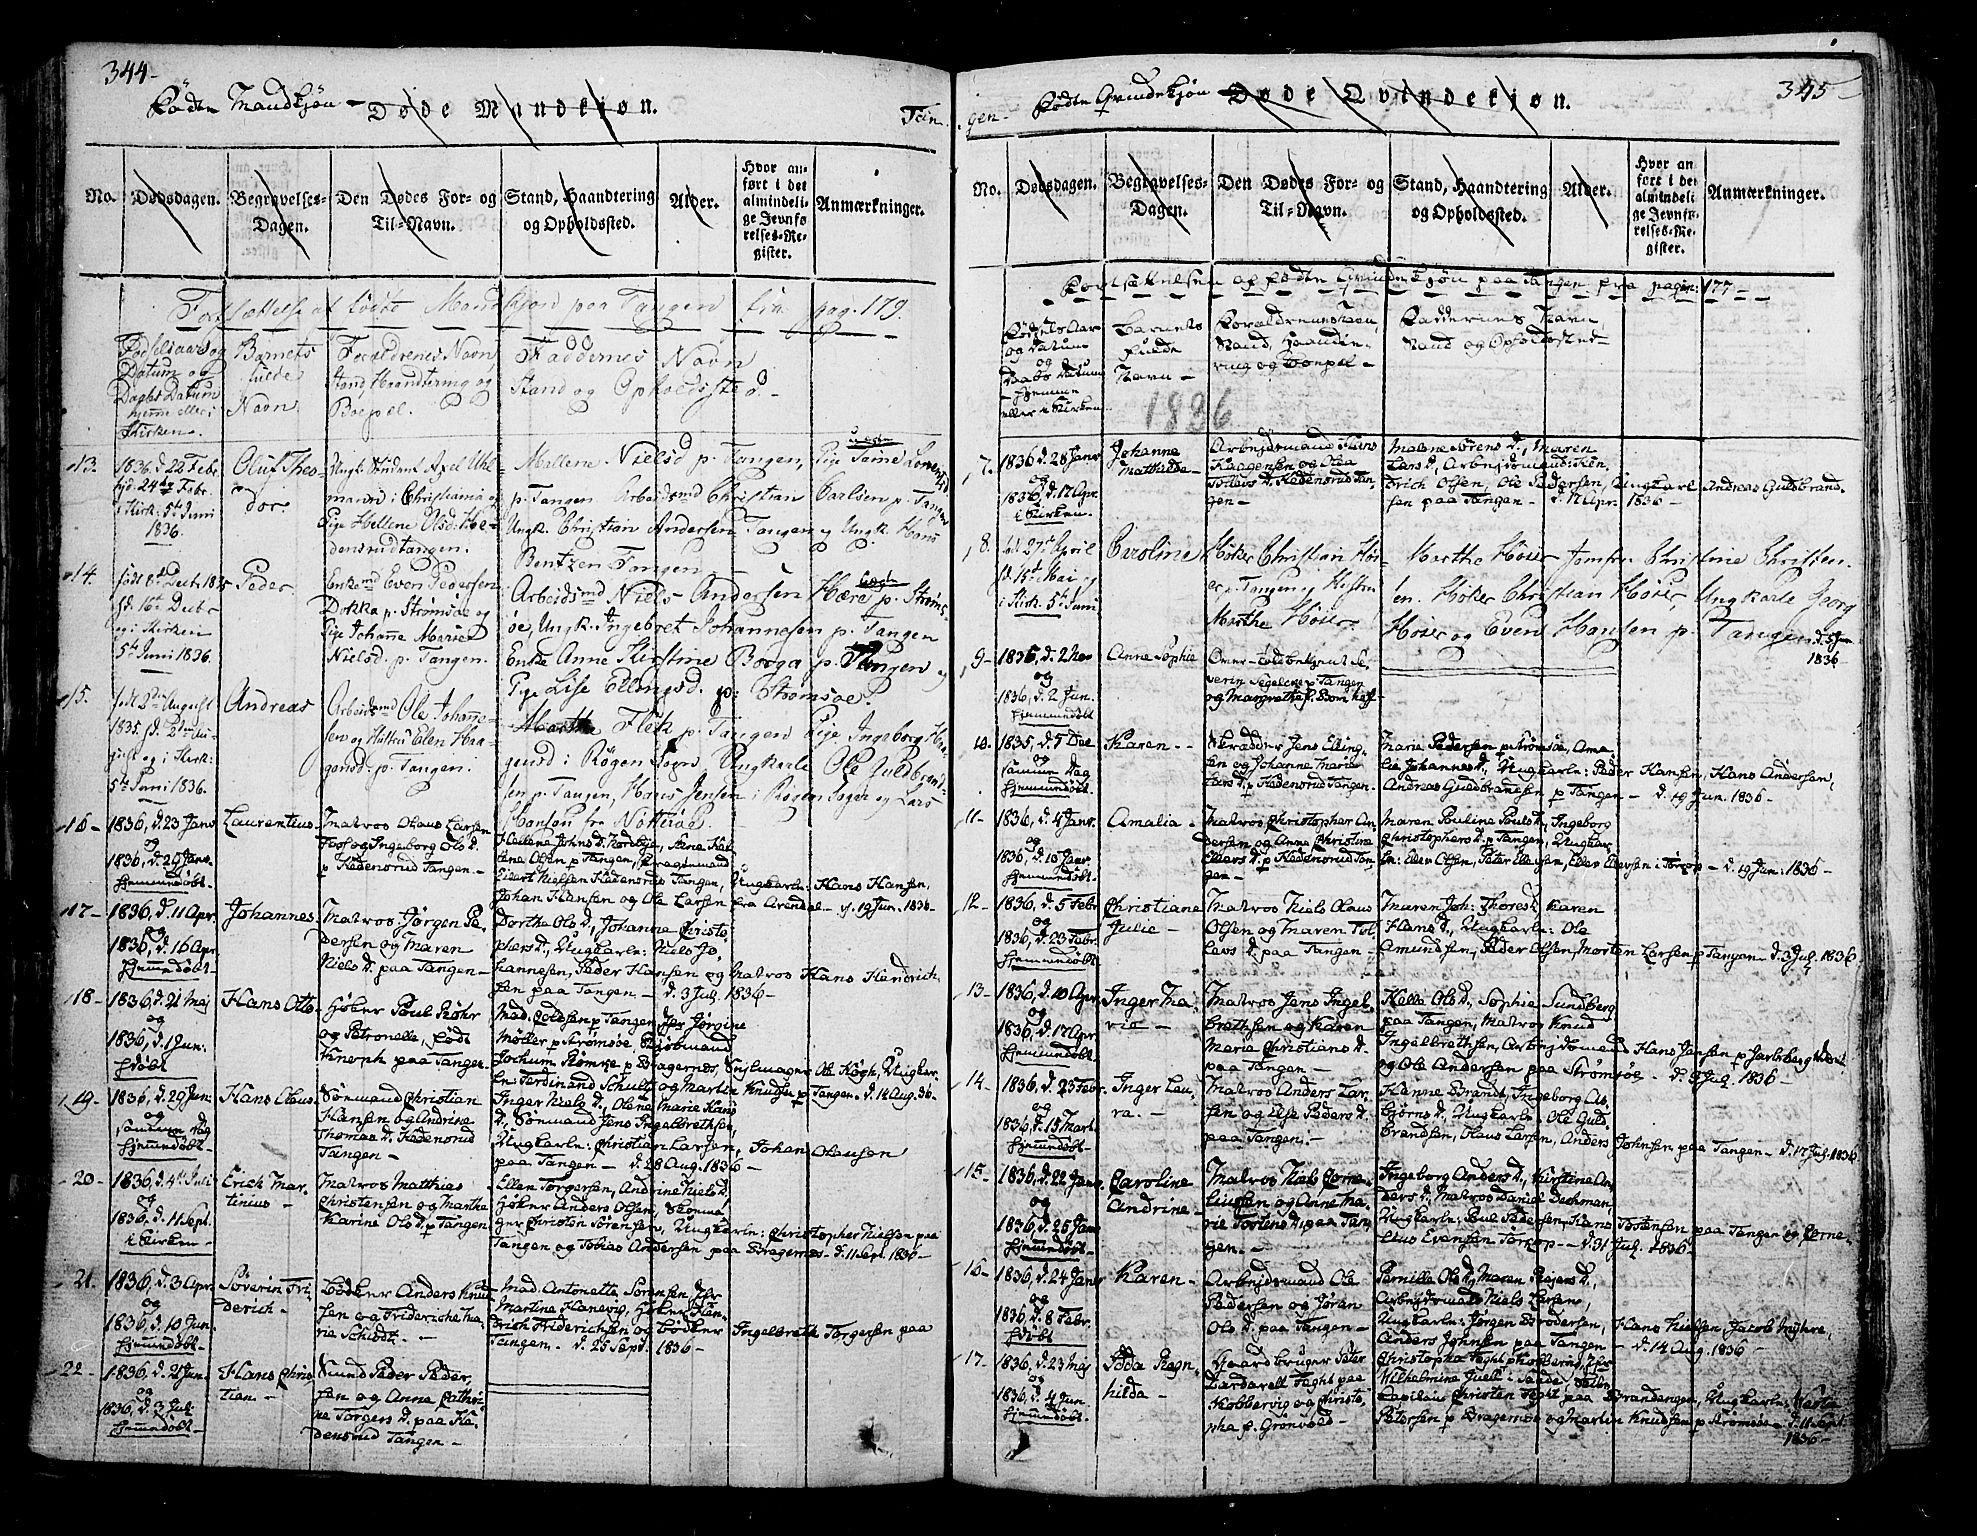 344-
Fødte Mandkjøn - Døde Mandkjøn.
Tan
No.
Dødsdagen.
Begravelses-
Dagen.
Den Dødes For- og
Til-Navn.
Stand, Haandtering
og Opholdssted.
Alder.
Hvor an-
ført i det
almindeli-
ge Jevnfø
relses-Re-
gister.
Anmærkninger.
Fortsættelse af født Mandkjøn paa Tangen fra pag. 179.
Fødselsaar og
Datum og
Daabs Datum
hjemme eller i
Kirken.
Barnets
fulde
Navn
Forældrenes Navn
Stand Haandtering og
Boepel.
Faddernes Navn
Stand og Opholdssted.
13.
1836. d. 22 Febr.
hjd. 24de Febr.
i Kirk. 5te Juni
1836.
Oluf Theo-
dor.
Ungk. Student Axel Uhl-
i Christiania og
Pige Hellene Olsd. He-
densrudtangen.
Mallene Nielsd p. Tangen, Pige
p. Tangen Arbeidsmd Christian Carlsen p. Tangen
Ungk. Christian Andersen Tangen og Ungk. Hans
Bentzen Tangen
14.
født 8de Decbr 1835
hd. 16te Decbr
og i Kirken
5te Juni 1836.
Peder
Enkemd Even Pedersen
Dokka p. Strømsøe og
Pige Johanne Marie
Nielsd. p. Tangen.
Arbeidsmd Niels Andersen Hære p. Strøms-
øe, Ungk. Ingebret Johannesen p. Tangen
Enke Anne Kirstine Borga p. Tangen og
Pige Lise Ellingsd. p. Strømsøe.
15.
født 2de August
1835. hd. 2den Au-
gust og i Kirk:
5te Juni 1836.
Andreas
Arbeidsmd Ole Johanne-
sen og Hustru Elen Haa-
gensd. p. Tangen.
Marthe Flek p. Tangen Pige Ingeborg Haa-
gensd i Røgen Sogn, Ungkarle Ole Guldbrand-
sen p. Tangen, Hans Jensen i Røgen Sogn og Lars
Hansen fra Nøtterøe.
16-
1836, d. 23 Janr
og
1836, d. 29 Janr.
hjemmedøbt-
Laurentius.
Matros Olaus Larsen
Foss og Ingeborg Ols d.
p Hedensrud Tangen -
Hellene Johns d. Nordbye, Anne Ka-
trine Olsen p Tangen, Dragonmand
Eivert Nielsen Hedensruds Tangen, Ungkarle: Hans Hansen,
Johan Hansen og Ole Larsen fra Arendal - d. 19 Jun. 1836-
17-
1836, d. 11 Apr.
og
1836, d. 16 Apr
hjemmedøbt-
Johannes
Matros Jørgen Pe-
dersen og Maren
Niels d. paa Tangen -
Dorthe Ols d, Johanne Christo-
phers d., Ungkarle: Niels Jo-
hannesen, Peder Hansen og Matros Hans Hendrich-
sen paa Tangen - d. 3 Jul. 1836 -
18-
1836, d. 21 Maj
og
1836, d. 1 Jun.
hjdøbt
Hans Otto
Høker Poul Røhr
og Petronelle, født
Knoph paa Tangen-
Mad. Coldsen p Tangen Jfr Jørgine
Møller p Strømsøe Kjøbmand
Jochum Rømke p Bragernes, Seylmager Ole Kogh, Ungkar-
le: Ferdinand Schultz og Martin Knudsen p Tangen. d. 14 Aug. 36-
19-
1836, d. 29 Jun.
og
samme Dag
hjemmedøbt-
Hans Olaus
Sømand Christian
Hansen og Andrine
Thomas d. Hedensrud
Tangen -
Inger Niels d., Olene Marie Hans
d., Sømand Jens Ingelbrethsen,
Ungkarle: Christian Larsen, Johan Olausen
paa Tangen - d. 28 Aug. 1836 -
20-
1836, d. 4de Juli
og
1836, d. 11 Sept.
i Kirken -
Erich Mar-
tinius -
Matros Matthias
Christensen og Marthe
Karine Ols d. p Tangen
Ellen Torgersen, Andrine Niels d.
Høker Anders Olsen, Skoma-
ger Christen Sørensen, Ungkarle: Christopher Nielsen paa
Tangen og Tobias Andersen paa Bragernes - d. 11 Sept. 1836 -
21.
1836, d. 3 Apr
og
1836, d. 10 Jun.
hjemmedøbt-
Søverin Fri-
derich -
Bødker Anders Knud-
sen og Frideriche Ma-
rie Schiødt -
Mad Antonette Sørensen, Jfr
Martine Hanevig, Høker Hen-
drich Friderichsen og Bødker Ingelbreth Torgersen paa
Tangen. - d. 25 Sept. 1836 -
22-
1836, d. 21 Jun.
og
1836, d. 3 Jul.
hjemmedøbt-
Hans Chris-
tian. -
Svend Peder Peder-
sen og Anne Cathri-
ne Torgers d. paa He-
densrud Tangen -
345
gen-
Fødte Qvindekjøn Døde Qvindekjøn.
No.
Dødsdagen.
Begravelses-
Dagen.
Den Dødes For- og
Til-Navn.
Stand, Haandtering
og Opholdssted.
Alder.
Hvor an
ført i det
almindeli
ge Jevnfø-
relses-Re-
gister.
Anmærkninger.
Fortsættelsen af fødte Qvindekjøn paa Tangen fra pagin: 177 -
Fødsels Aar
og Datum
og
Daabs Datum
- hjemme
eller i Kirken.
Barnets
fulde
Navn -
Forældrenes Navn,
Stand, Haandte-
ring og Boepel -
Faddernes Navn,
Stand og Opholdssted -
1836
7.
1836 d. 28 Janr
og
1836, d. 17 Apr.
i Kirken.
Johanne
Mathilde -
Arbejdsmand Hans
Haagensen og Olea
Tollevs d. Hedensrud Tan-
gen -
Malene Sørens d., Maren
Lars d., Arbejdsmand: Hen-
drich Olsen, Ole Pedersen, Ungkarl Andreas Guldbrand-
sen paa Tangen - d. 17 Apr. 1836 -
8.
født 27de April
hd. 15de Mai og
i Kirk. 5te Juni
Caroline
Høker Christian Høi-
er p. Tangen og Hustru
Marthe Høier
Marthe Høier Jomfru Christine Christen-
sen. Høker Christian Høier, Ungkarle Georg
Høier og Even Hansen p. Tangen d. 5 Jun
1836 -
9-
1835, d. 2 Nov
og
1836, d. 2 Jun.
hjemmedøbt
Anne Sophie
Severin Segelene p. Tangen
10.
1835, d. 5 Dec
og
samme Dag
hjemmedøbt
Karen -
Skrædder Jens Elling-
sen og Johanne Marie
Lars d. p Hedensrud Tangen.
Marie Pedersen p Strømsøe, Ama-
lie Johannes d., Ungkarle: Peder Hansen, Hans Andersen,
Andreas Guldbrandsen p Tangen - d. 19 Jun. 1836 -
11-
1836, d. 4 Janr.
og
1836, d. 10 Janr.
hjemmedøbt-
Amalia -
Matros Christopher An-
dersen og Anne Christine
Ellers d. p Hedensrud Tan-
gen -
Maren Pauline Pouls d., Ingeborg
Christophers d. p Tangen, Ungkar-
le: Eller Olsen, Peter Ellevsen, Eller Ellevsen i Torsop - d. 19 Jun. 1836 -
12-
1836, d. 5 Febr
og
1836, d. 23 Febr.
hjemmedøbt
Christiane
Julie -
Matros Niels Olaus
Olsen og Maren Tol-
levs d. paa Tangen -
Maren Joh: Thores d. Karen
Hans d., Ungkarle: Ole
Amundsen, Peder Olsen, Morten Larsen p Tangen - d. 3 Jul. 1836
13-
1836, d. 10 Apr.
og
1836, d. 17 Apr.
hjemmedøbt-
Inger Ma-
ria -
Matros Jens Ingel-
brethsen og Karen
Marie Christians d.
paa Tangen -
Helle Ols d., Sophie Sundberg
paa Tangen, Matros Knud
Ingelbrethsen, Arbejdsmand Hans Jensen p Jarlsberg
og Ole Andersen paa Strømsøe - d. 9 Jul. 1836 -
14-
1836, d. 23 Febr.
og
1836, d. 15 Mart.
hjemmedøbt-
Inger Lau-
ra. -
Matros Anders Lar-
sen og Else Peders d.
paa Tangen. -
Hanne Brandt, Ingeborg As-
bjørns d., Ungkarle: Ole Guld-
brandsen, Hans Larsen, Anders Johnsen paa Tangen - d. 17 Jul. 1836
15-
1836, d. 22 Janr.
og
1836, d. 25 Janr
hjemmedøbt-
Caroline
Andrine -
Matros Niels Corne-
liussen og Anne Ma-
rie Torstens d. paa Tan-
gen. -
Ingeborg Anders d., Kirstine An-
ders d., Matros Daniel Dechman,
Ungkarle: Poul Pedersen, Hans Torstensen paa Tangen og Corne-
lius Evensen Torsop - d. 31 Jul. 1836 -
16-
1836, d. 24 Janr
og
1836, d. 8 Febr.
hjdøbt
Karen -
Arbejdsmand Ole
Pedersen og Jøran
Ols d. paa Tangen -
Pernille Ols d., Maren Rejers d.,
Arbejdsmand Niels Larsen,
Ungkarle: Jørgen Brodersen, Hans Nielsen, Jacob Myhre,
Anders Johnsen paa Tangen - d. 14 Aug. 1836 -
17-
1836, d. 23 Maj
og
1836, d. 4 Jun.
hjemmedøbt-
Idda Ragn-
hilda -
Gaardbruger Peter
Cardarell Foght paa
Kobbervig og Christo-
pha f. Grønvold -
Christopha Foght p Kobbervig, Jfr
Wilhelmine Juell i Sande,
Capitain Christen Foght paa Brandengen, Ungkarle:
Petersen p Bragernes og Martin Knudsen p Strømsøe - d. 11 Sept
1836 -